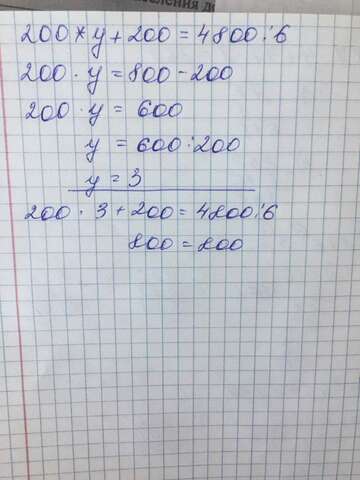 200 * y + 200 = 4800 : 6
200 · y = 800 - 200
200 · y = 600
y = 600 : 200
y = 3
200 · 3 + 200 = 4800 : 6
800 = 800